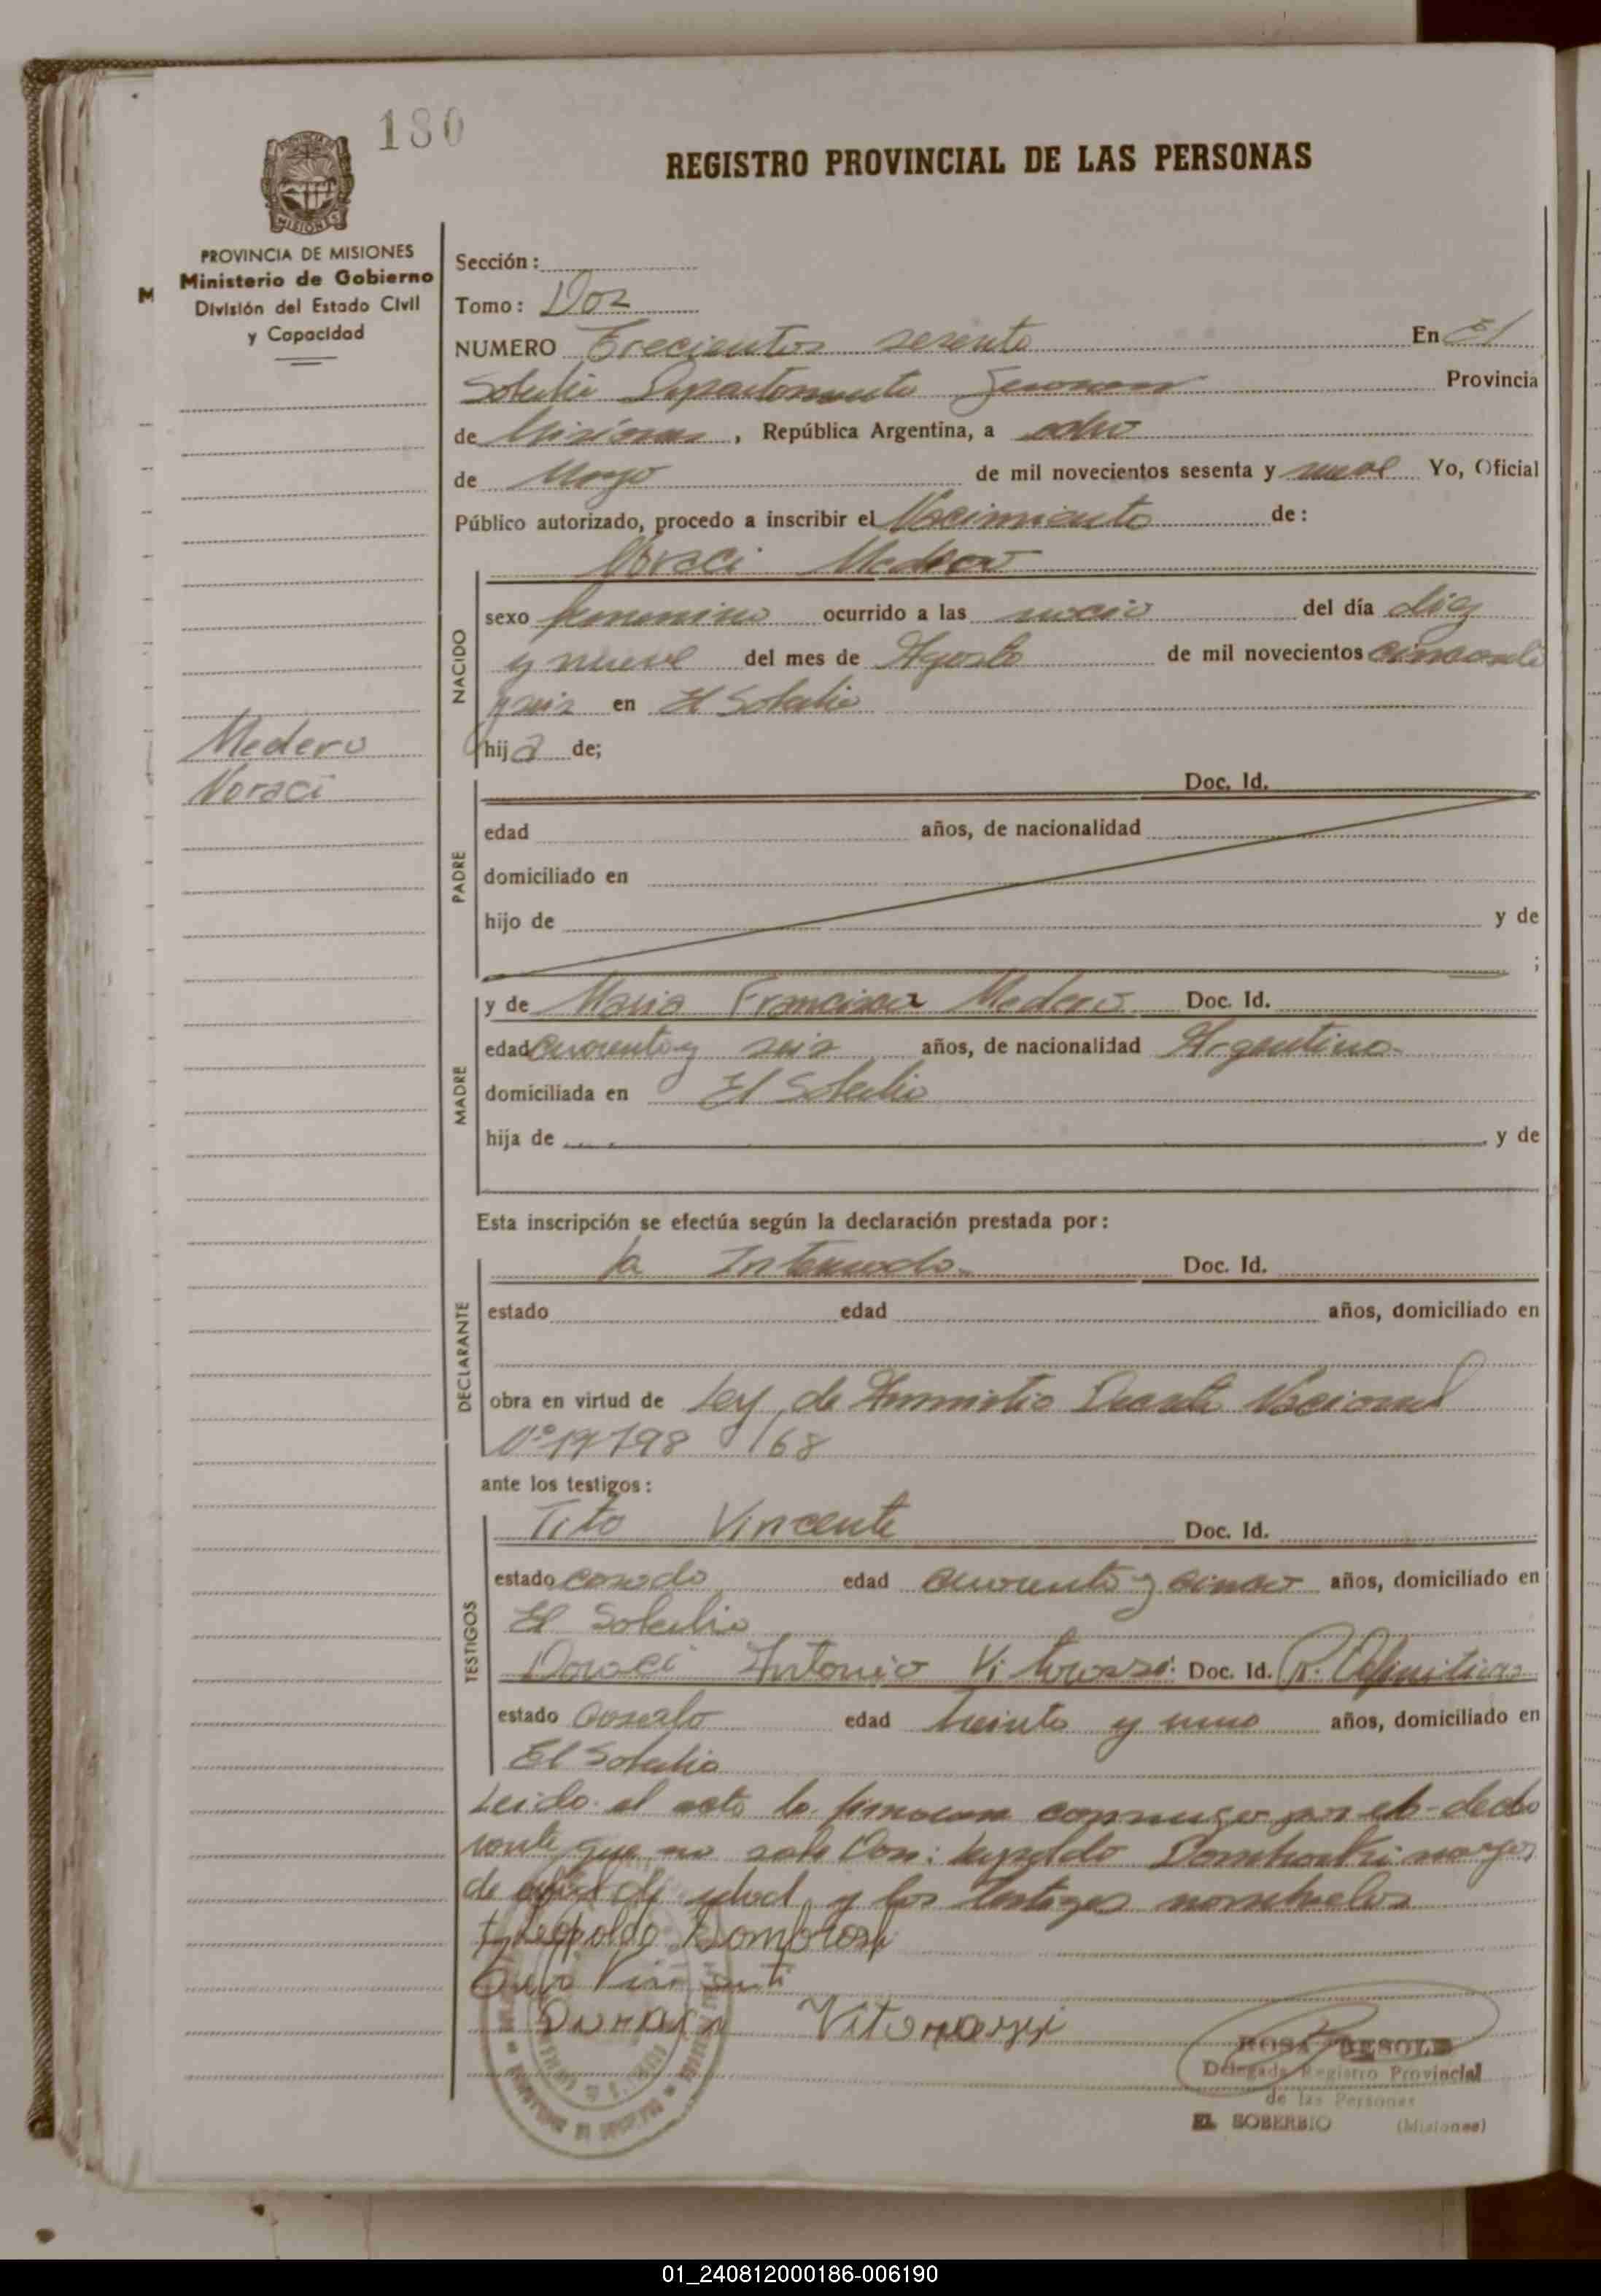 180
REGISTRO PROVINCIAL DE LAS PERSONAS
PROVINCIA DE MISIONES
Ministerio de Gobierno
División del Estado Civil
y Capacidad
M
Medero
Noraci
Sección:
Tomo: Dos
NUMERO Trecientos sesenta En El
Soberbio Departamento Provincia
de Misiones, República Argentina, a ocho
de Mayo de mil novecientos sesenta y nueve Yo, Oficial
Público autorizado, procedo a inscribir el Nacimiento de:
Noraci Medero
NACIDO
sexo femenino ocurrido a las del día diez
y nueve del mes de Agosto de mil novecientos cincuenta
y seis en El Soberbio
hija de;
PADRE
Doc. Id.
edad años, de nacionalidad
domiciliado en
hijo de y de
;
MADRE
y de Maria Francisca Medero Doc. Id.
edad cuarenta y seis años, de nacionalidad Argentina
domiciliada en El Soberbio
hija de y de
Esta inscripción se efectúa según la declaración prestada por:
DECLARANTE
la Doc. Id.
estado edad años, domiciliado en
obra en virtud de Ley de Amnistia Nacional
Nº 17798/68
ante los testigos:
TESTIGOS
Tito Vincente Doc. Id.
estado casado edad cuarenta y cinco años, domiciliado en
El Soberbio
Doraci Antonio Vitorassi Doc. Id.
estado casado edad treinta y uno años, domiciliado en
El Soberbio
Leido el acta la firman conmigo por el decla
rante que no sabe Don: Leopoldo mayor
de edad y los testigos nombrados
Leopoldo
Vitorassi
ROSA
Delegada Registro Provincial
de las Personas
EL SOBERBIO (Misiones)
01_240812000186-006190